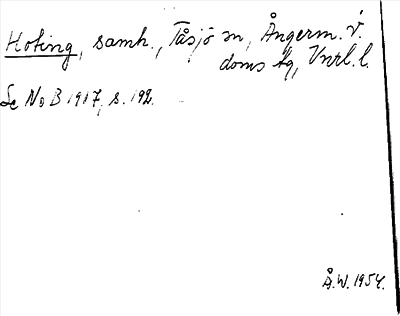 Hoting, samh., Tåsjö sn, Ångerm. v.
doms tg, Vnrl. l.
Se NoB 1917, s. 192.
Å.W. 1954.